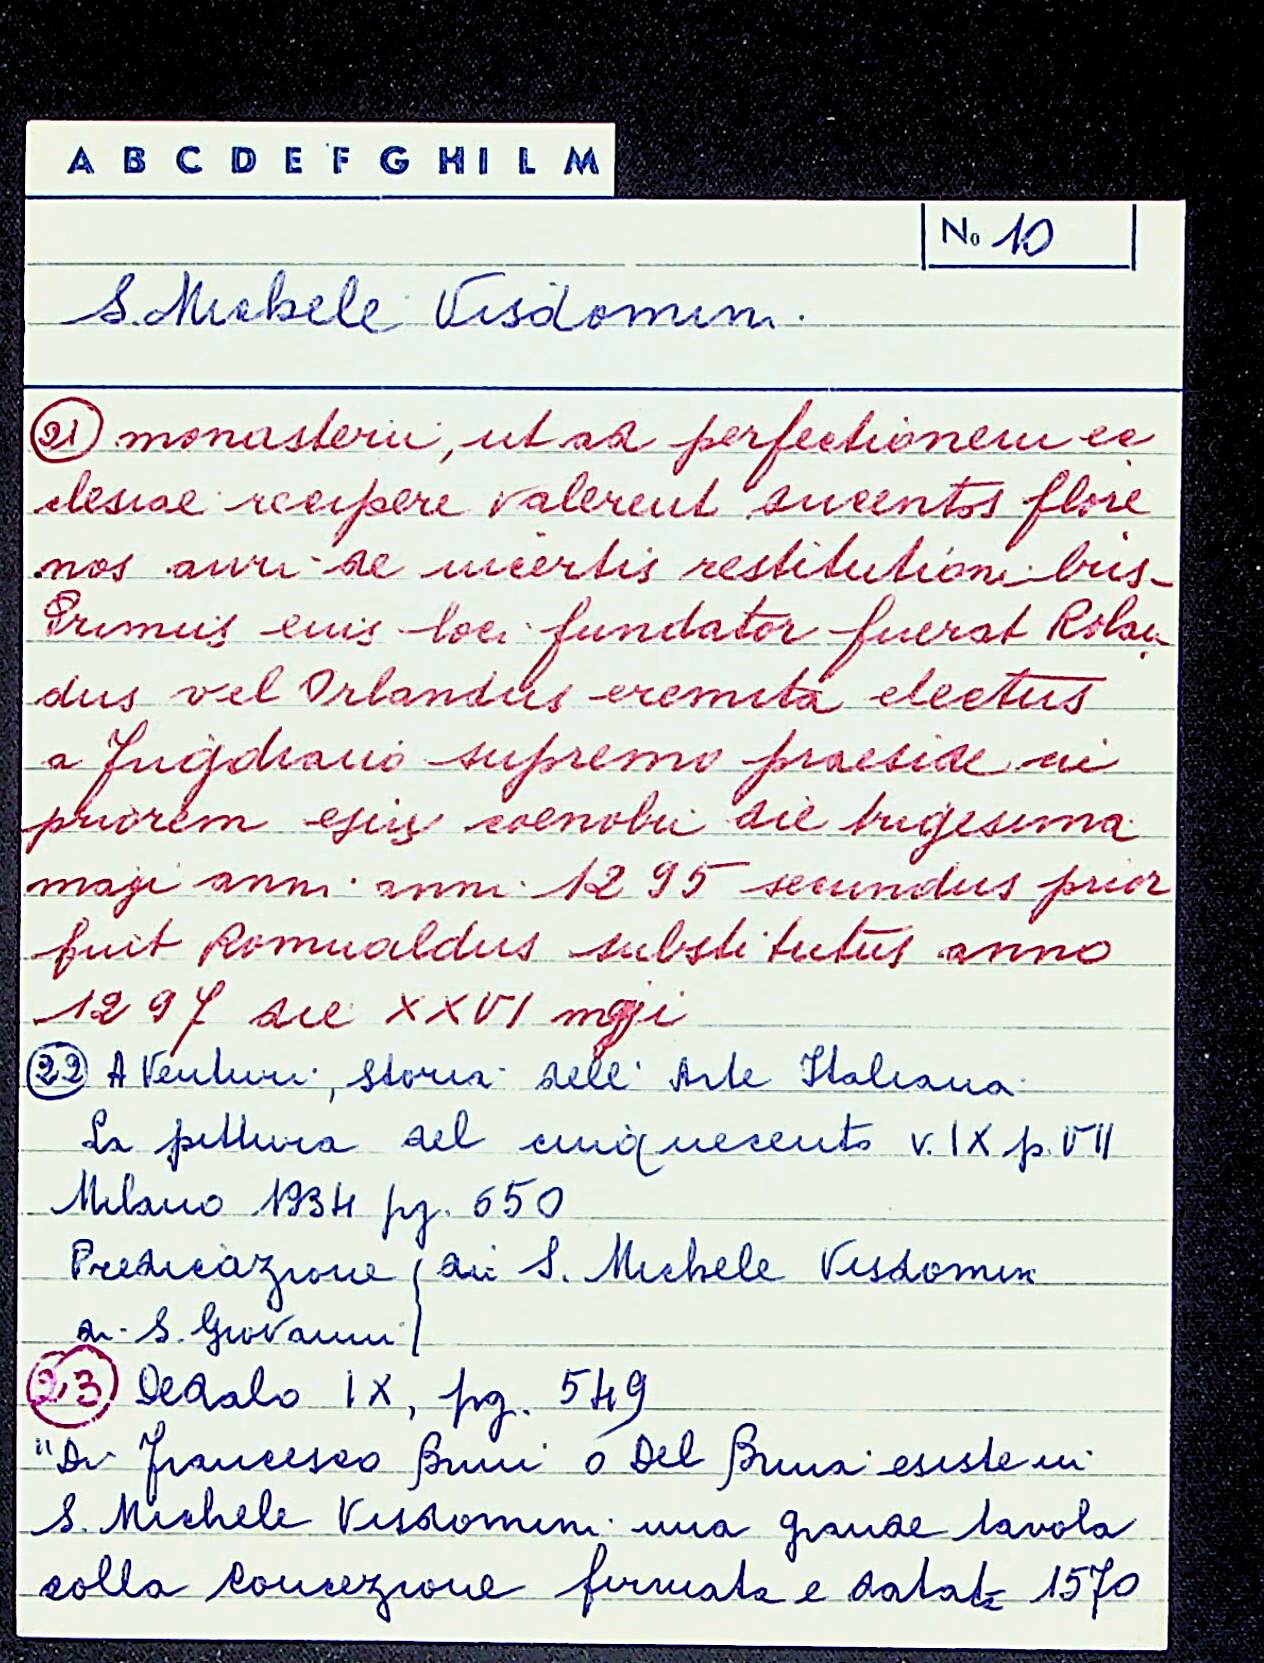 A B C D E F G H I L M
No 10
S. Michele Visdomini.
21) monasterii, ut ad perfectionem ec
clesiae recipere valerent ducentos flore
nos auri de incertis restitutioni bus-
Primus euis loci fundator fuerat Rolan
dus vel Orlandus eremita electus
a supremo praeside in
priorem coenobii die trigesima
magi anni anni 1295 secundus prior
fuit Romualdus substitutus anno
1297 die XXVI magi
22) A Venturi, storia dell' Arte Italiana
La pittura del cinquecento v. IX p. VII
Milano 1934 pg. 650
Predicazione } in S. Michele Visdomini
di S. Giovanni
23) Dedalo IX, pg. 549
"Di Francesco Bruni o Del Bruna esiste in
S. Michele Visdomini una grande tavola
colla concezione firmata e datata 1570